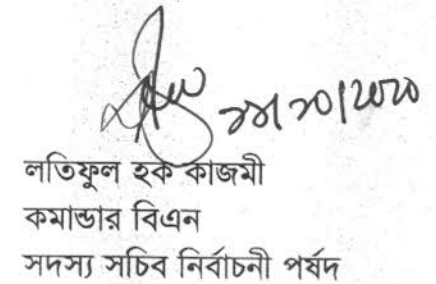 লতিফুল হক কাজমী
কমান্ডার বিএন
সদস্য সচিব নির্বাচনী পর্ষদ